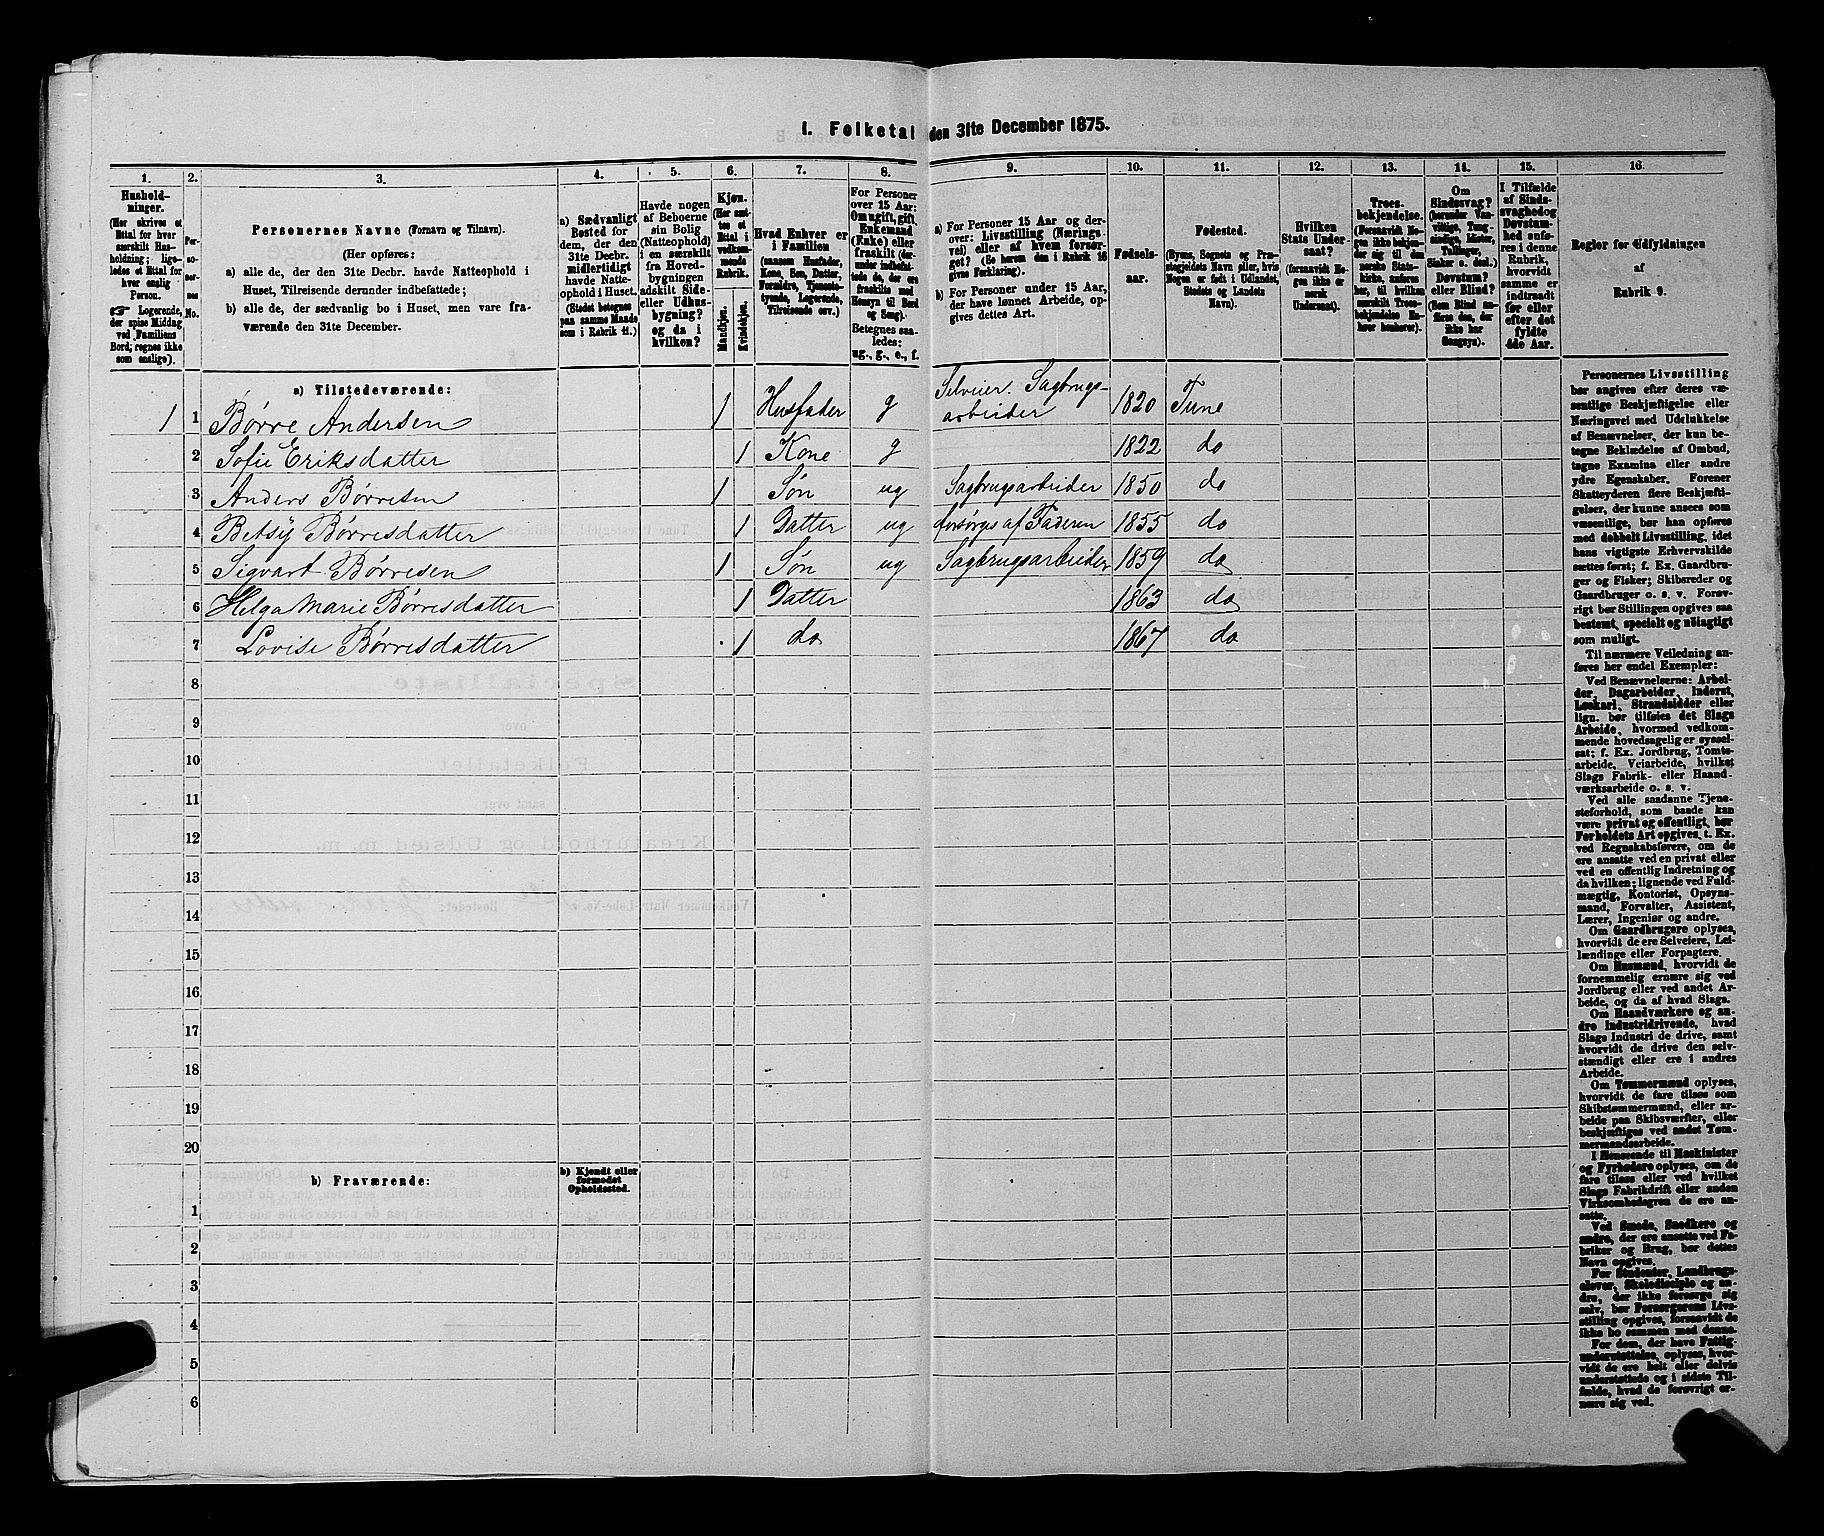 I. Folketal den 31te December 1875.
1. 2. 3. 4. 5. 6. 7. 8. 9. 10. 11. 12. 13. 14. 15. 16.
Hushold-
ninger.
(Her skrives et
Ettal for hver
særskilt Hus-
holdning; lige-
ledes et Ettal for
hver enslig
Person.
☞ Logerende,
der spise Middag
ved Familiens
Bord, regnes ikke
som enslige).
Per-
so-
ner-
nes
No.
Personernes Navne (Fornavn og Tilnavn).
(Her opføres:
a) alle de, der den 31te Decbr. havde Natteophold i
Huset, Tilreisende derunder indbefattede;
b) alle de, der sædvanlig bo i Huset, men vare fra-
værende den 31te December.
a) Sædvanligt
Bosted for
dem, der den
31te Decbr.
midlertidigt
havde Natte-
ophold i Huset.
(Stedet betegnes
paa samme Maade
som i Rubrik 11.)
Havde nogen
af Beboerne
sin Bolig
(Natteophold)
i en særskilt
fra Hoved-
bygningen
adskilt Side-
eller Udhus-
bygning?
og da i
hvilken?
Kjøn.
(Her sæt-
tes et
Ettal i
vedkom-
mende
Rubrik.
Mandkjøn.
Kvindekjøn.
Hvad Enhver er
i Familien
(saasom Husfader,
Kone, Søn, Datter,
Forældre, Tjeneste-
tyende, Logerende,
Tilreisende osv.)
For Personer
over 15 Aar:
Om ugift, gift,
Enkemand
(Enke) eller
fraskilt (der-
under indbefat-
tede de, der ere
fraskilte med
Hensyn til Bord
og Seng).
Betegnes saa-
ledes:
ug., g., e., f.
a) For Personer 15 Aar og der-
over: Livsstilling (Nærings-
vei) eller af hvem forsør-
get? (Se herom den i Rubrik 16
givne Forklaring).
b) For Personer under 15 Aar,
der have lønnet Arbeide, op-
gives dettes Art.
Fødsels-
aar.
Fødested.
(Byens, Sognets og Præ-
stegjeldets Navn eller, hvis
Nogen er født i Udlandet,
Stedets og Landets
Navn).
Hvilken
Stats Under-
saat?
(forsaavidt No-
gen ikke er
norsk
Undersaat).
Troes-
bekjendelse.
(Forsaavidt No-
gen ikke bekjen-
der sig til den
norske Stats-
kirke, anføres
her, til hvilken
særskilt Troes-
bekjendelse En-
hver henhører).
Om
Sindssvag?
(herunder Van-
vittige, Tung-
sindige, Idioter,
Tullinger,
Sinker o. desl.)
Døvstum?
eller Blind?
(Som Blind an-
føres den, der
ikke har
Gangsyn).
I Tilfælde
af Sinds-
svaghed og
Døvstum-
hed anfø-
res i denne
Rubrik,
hvorvidt
samme er
indtraadt
før eller
efter det
fyldte
4de Aar.
Regler for Udfyldningen
af
Rubrik 9.
a) Tilstedeværende:
1 1 Børre Andersen 1 Husfader g Selveier. Sagbrugs-
arbeider 1820 Tune
2 Sofie Eriksdatter 1 Kone g 1822 do
3 Anders Børresen 1 Søn ug Sagbrugsarbeider 1850 do
4 Betsy Børresdatter 1 Datter ug forsørges af Faderen 1855 do
5 Sigvart Børresen 1 Søn ug Sagbrugsarbeider 1859 do
6 Helga Marie Børresdatter 1 Datter 1863 do
7 Lovise Børresdatter 1 do 1867 do
8
9
10
11
12
13
14
15
16
17
18
19
20
b) Fraværende:
b) Kjendt eller
formodet
Opholdssted.
1
2
3
4
5
6
Personernes Livsstilling
bør angives efter deres væ-
sentlige Beskjæftigelse eller
Næringsvei med Udelukkelse
af Benævnelser, der kun be-
tegne Beklædelse af Ombud,
tagne Examina eller andre
ydre Egenskaber. Forener
Skatteyderen flere Beskjæfti-
gelser, der kunne ansees som
væsentlige, bør han opføres
med dobbelt Livsstilling, idet
hans vigtigste Erhvervskilde
sættes først; f. Ex. Gaardbru-
ger og Fisker; Skibsreder og
Gaardbruger o. s. v. Forøv-
rigt bør Stillingen opgives saa
bestemt, specielt og nøiagtigt
som muligt.
Til nærmere Veiledning an-
føres her endel Exempler:
Ved Benævnelserne: Arbei-
der, Dagarbeider, Inderst,
Løskarl, Strandsidder eller
lign. bør tilføies det Slags
Arbeide, hvormed vedkom-
mende hovedsagelig er syssel-
sat; f. Ex. Jordbrug, Tomte-
arbeide, Veiarbeide, hvilket
Slags Fabrik- eller Haand-
værksarbeide o. s. v.
Ved alle saadanne Tjene-
steforhold, som baade kan
være privat og offentligt, bør
Forholdets Art opgives, t. Ex.
ved Regnskabsførere, om de
ere ansatte ved en privat eller
ved en offentlig Indretning og
da hvilken; lignende ved Fuld-
mægtig, Kontorist, Opsyns-
mand, Forvalter, Assistent,
Lærer, Ingeniør og andre.
Om Gaardbrugere oplyses,
hvorvidt de ere Selveiere, Lei-
lændinge eller Forpagtere.
Om Husmænd, hvorvidt de
fornemmelig ernære sig ved
Jordbrug eller ved andet Ar-
beide, og da af hvad Slags.
Om Haandværkere og an-
dre Industridrivende, hvad
Slags Industri de drive, samt
hvorvidt de drive den selv-
stændigt eller ere i andres
Arbeide.
Om Tømmermænd oplyses,
hvorvidt de fare tilsøs som
Skibstømmermænd, eller ar-
beide paa Skibsværfter, eller
beskjæftiges ved andet Tøm-
mermandsarbeide.
I Henseende til Maskinister
og Fyrbødere oplyses, om de
fare tilsøs eller ved hvilket
Slags Fabrikdrift eller anden
Virksomhedsgren de ere an-
satte.
Ved Smede, Snedkere og
andre, der ere ansatte ved Fa-
briker og Brug, bør dettes
Navn opgives.
For Studenter, Landbrugs-
elever, Skoledisciple og an-
dre, der ikke forsørge sig
selv, bør Forsørgerens Livs-
stilling opgives, forsaavidt de
ikke bo sammen med denne.
For dem, der have Fattig-
understøttelse, oplyses, hvor-
vidt de ere helt eller delvis
understøttede og i sidste Til-
fælde, hvad de forøvrigt er-
nære sig ved.